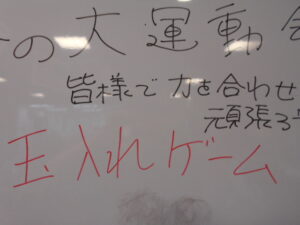 の大運動会
皆様で力を合わせ
頑張ろう
玉入れゲーム